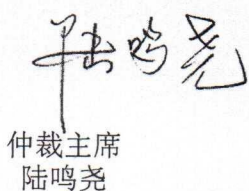 陆鸣尧
仲裁主席
陆鸣尧